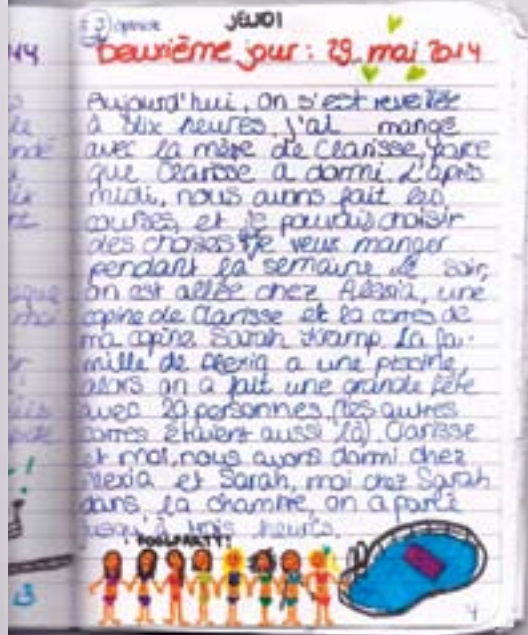 JEUDI
Deuxième jour : 29. mai 2014
Aujourd'hui, on s'est reveillée
à dix heures, j'ai mangé
avec la mère de Clarisse, parce
que Clarisse a dormi. L'après
midi, nous avons fait les
courses, et je pouvais choisir
des choses je veux manger
pendant la semaine. Le soir,
on est allée chez Alexia, une
copine de Clarisse et la corres de
ma copine Sarah Kramp. La fa-
mille de Alexia a une piscine,
alors on a fait une grande fête
avec 20 personnes (les autres
corres étaient aussi là). Clarisse
et moi, nous avons dormi chez
Alexia et Sarah, moi chez Sarah
dans la chambre, on a parlé
jusqu'à trois heures.
POOLPARTY!
4